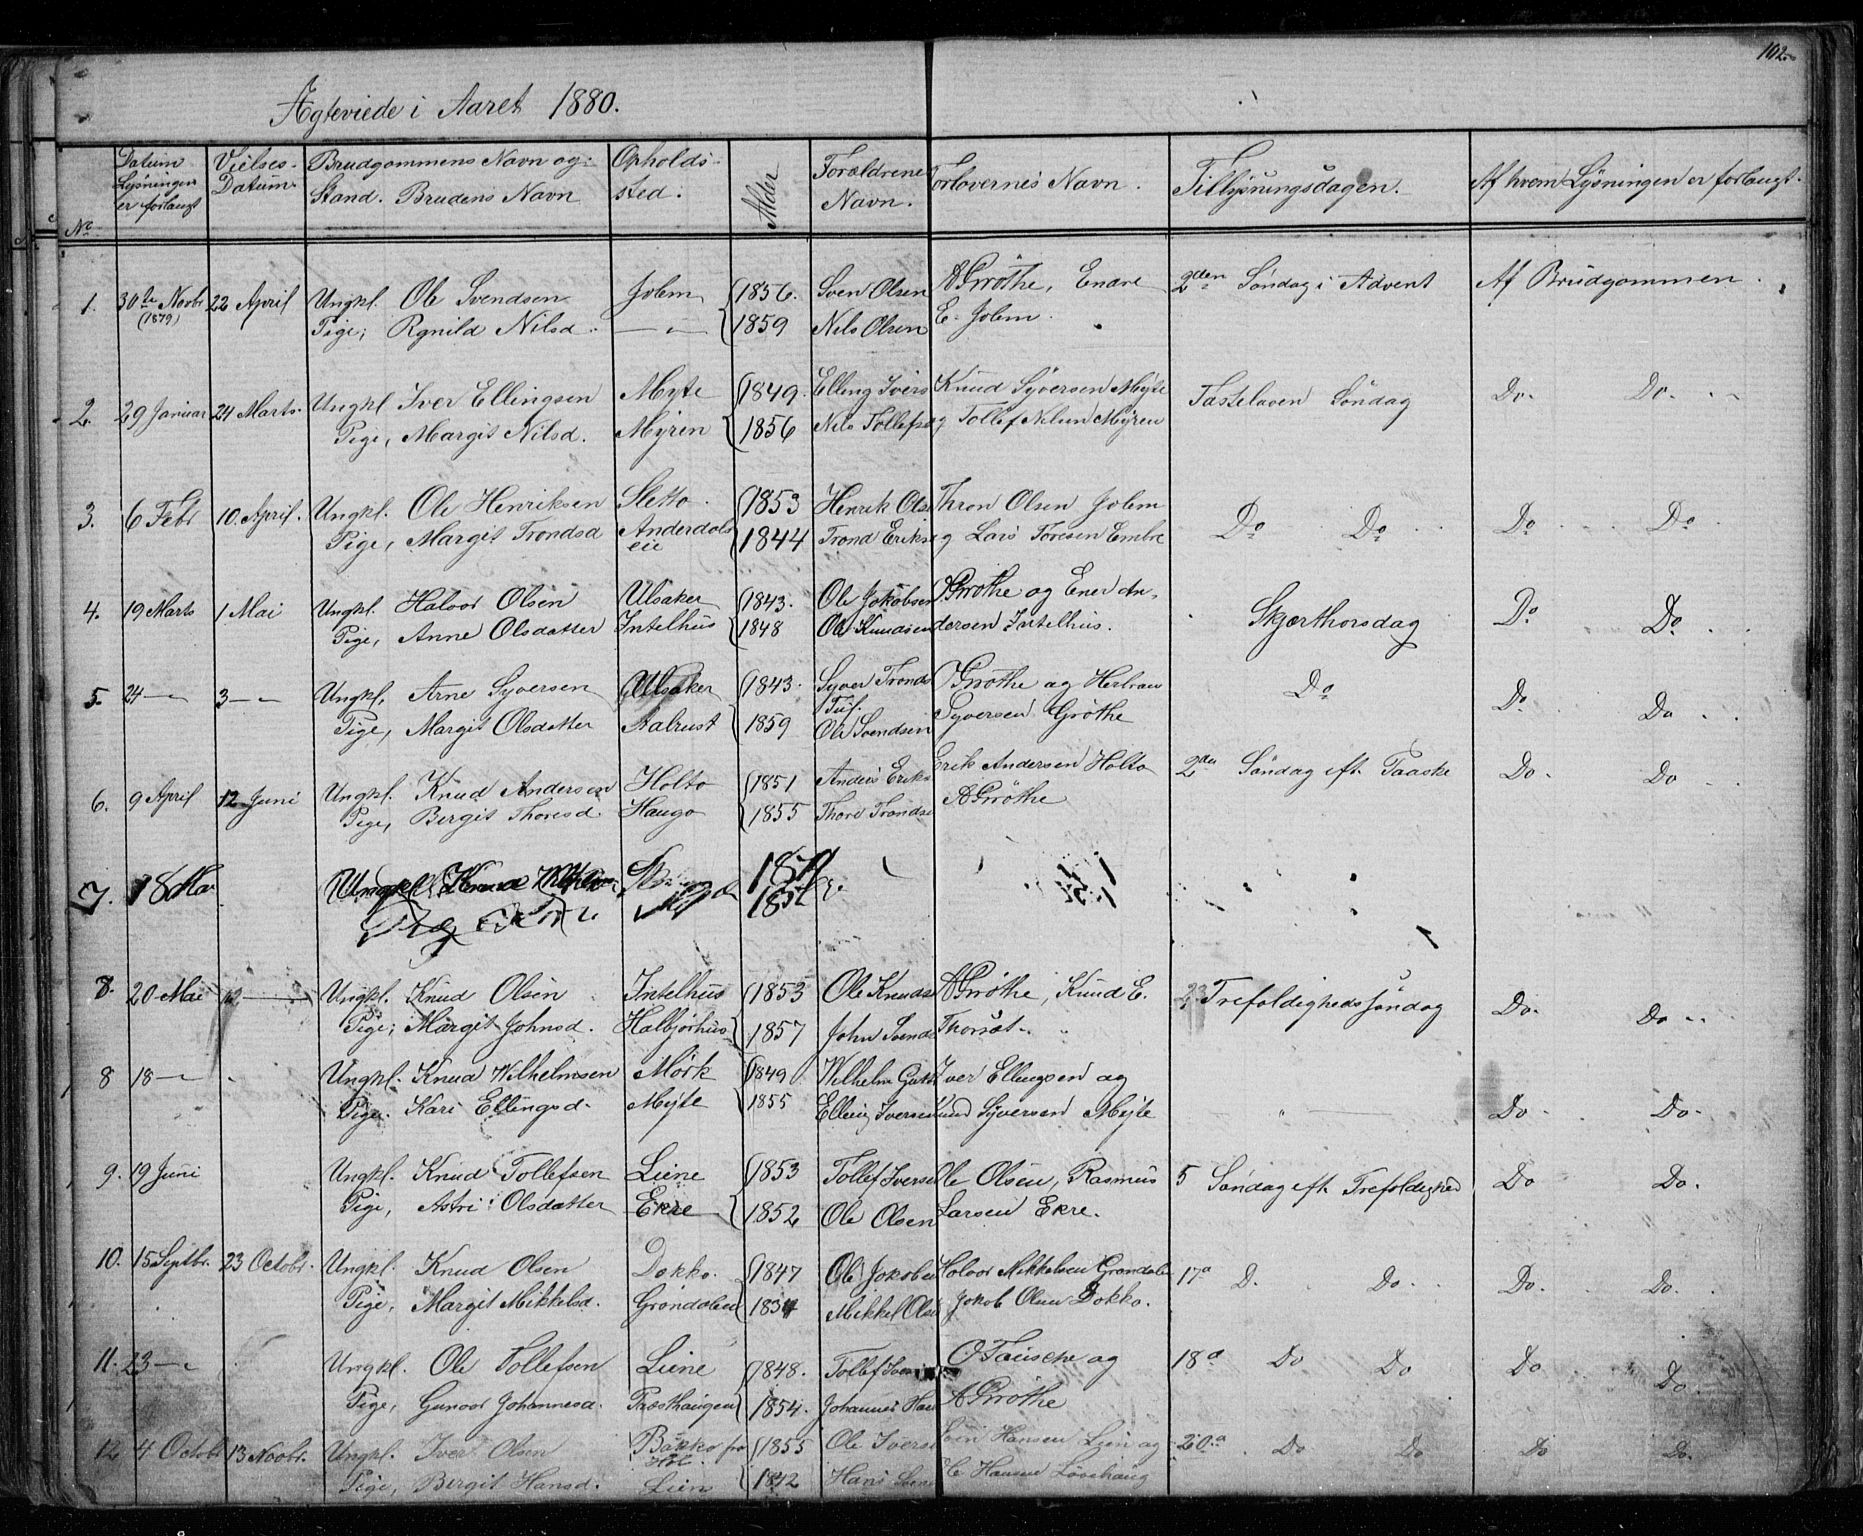 102.
Ægteviede i Aaret 1880.
No
Datum Lysningen er forlangt
Vielses-Datum
Brudgommens Navn og Stand. Brudens Navn
Opholds-sted.
Alder
Forældrene Navn.
Forlovernes Navn.
Tillysningsdagen.
Af hvem Lysningen er forlangt.
1. 30te Novbr 22 April Ungkl. Ole Svendsen Jolem 1856. Sven Olsen A Grøthe, Endre 2den Søndag i Advent Af Brudgommen.
(1879) Pige, Rgnild Nilsd. — " — 1859 Nils Olsen E. Jolem.
2. 29 Januar 24 Marts. Ungkl Iver Ellingsen Myte 1849. Elling Ivers Knud Syversen Myte Fastelaven Søndag Do. Do.
Pige, Margit Nilsd. Myren 1856 Nils Tollefs og Tollef Nilsen Myren
3. 6 Febr 10. April. Ungkl. Ole Henriksen Sletto. 1853 Henrik Ols Thron Olsen Jolem Do Do Do Do
Pige, Margit Trondsd Anderdals eie 1844 Trond Eriks og Lars Toresen Embre
4. 19 Marts 1 Mai Ungkl. Halvor Olsen Ulsaker 1843. Ole Jokobsen A Grøthe og Ener An- Skjærthorsdag Do Do
Pige, Anne Olsdatter Intelhus 1848 Ole Knudsen dersen Intelhus.
5. 24 — " 3 — " Ungkl. Arne Syversen Ulsaker 1843. Syver Tronds Tuf. A Grøthe og Herbran Do Do Do
Pige, Margit Olsdatter Aalrust 1859 Ole Svendsen Syversen Grøthe
6. 9 April 12 Juni Ungkl. Knud Andersen Holto 1851 Anders Eriks Erik Andersen Holto 2den Søndag eft. Paaske Do. Do
Pige, Bergit Thoresd. Haugo 1855 Thore Trondse A Grøthe
7. 18 Ma Ungkl. Knud
8. 20 Mai 12 — Ungkl. Knud Olsen Intelhus 1853 Ole Knuds A Grøthe, Knud E. Trefoldigheds søndag Do. Do
Pige; Margit Johnsd. Halbjørhus 1857 John Svends Thorset.
8 18 — " Ungkl. Knud Wilhelmsen Mørk 1849 Wilhelm Gutt Iver Ellingsen og " — Do Do.
Pige. Kari Ellingsd. Myte 1855 Elling Iversen Knud Syversen Myte
9. 19 Juni Ungkl. Knud Tollefsen Liene 1853 Tollef Iverse Ole Olsen, Rasmus 5 Søndag eft. Trefoldighed Do Do.
Pige, Astri Olsdatter Ekre 1852 Ole Olsen Larsen Ekre.
10. 15 Septbr. 23 Octobr. Ungkl. Knud Olsen Dokko. 1847 Ole Jokobse Holvor Mikkelsen Grøndale 17a D. Do. Do. Do.
Pige, Margit Mikkelsd. Grøndalen Mikkel Olse Jokob Olsen Dokko.
11. 23 — " Ungkl. Ole Tollefsen Liene 1848. Tollef O Tausche og 18a Do Do Do Do.
Pige, Gunvor Johannesd. Præsthaugen 1854. Johannes Han A Grøthe
12 4 Octobr 13 Novbr. Ungkl. Iver Olsen Bakko fra Hol. 1855 Ole Iverse Sven Hansen Lien og 20.a Do Do Do Do.
Pige, Bergit Hansd. Lien 1842 Hans Sven Ole Hansen Løvehaug